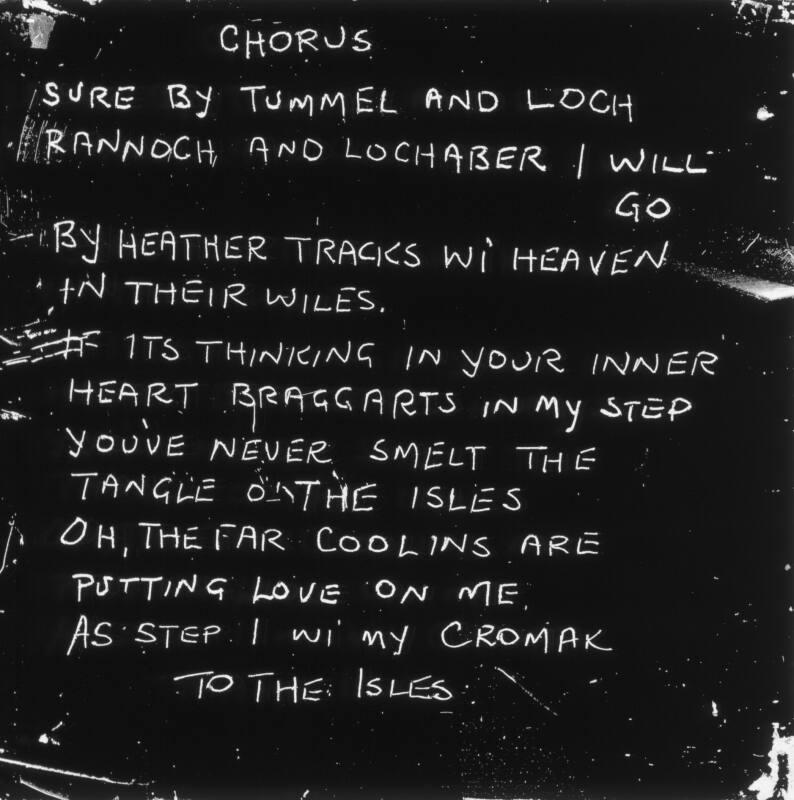 CHORUS
SURE BY TUMMEL AND LOCH
RANNOCH AND LOCHABER I WILL
GO
BY HEATHER TRACKS WI' HEAVEN
IN THEIR WILES.
IF ITS THINKING IN YOUR INNER
HEART BRAGGARTS IN MY STEP
YOU'VE NEVER SMELT THE
TANGLE O' THE ISLES
OH, THE FAR COOLINS ARE
PUTTING LOVE ON ME.
AS STEP I WI' MY CROMAK
TO THE ISLES